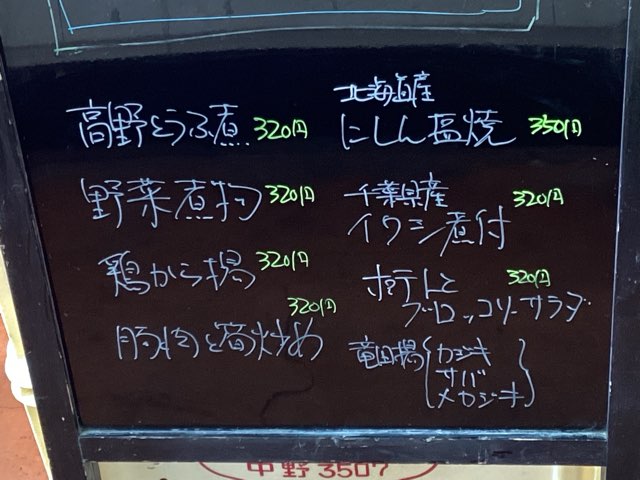 高野とうふ煮 320円
野菜煮物 320円
鶏から揚 320円
320円
豚肉と 炒め
北海道産
にしん塩焼 350円
千葉県産 320円
イワシ煮付
ポテトと 320円
ブロッコリーサラダ
竜田揚 カジキ
サバ
メカジキ
中野 3507